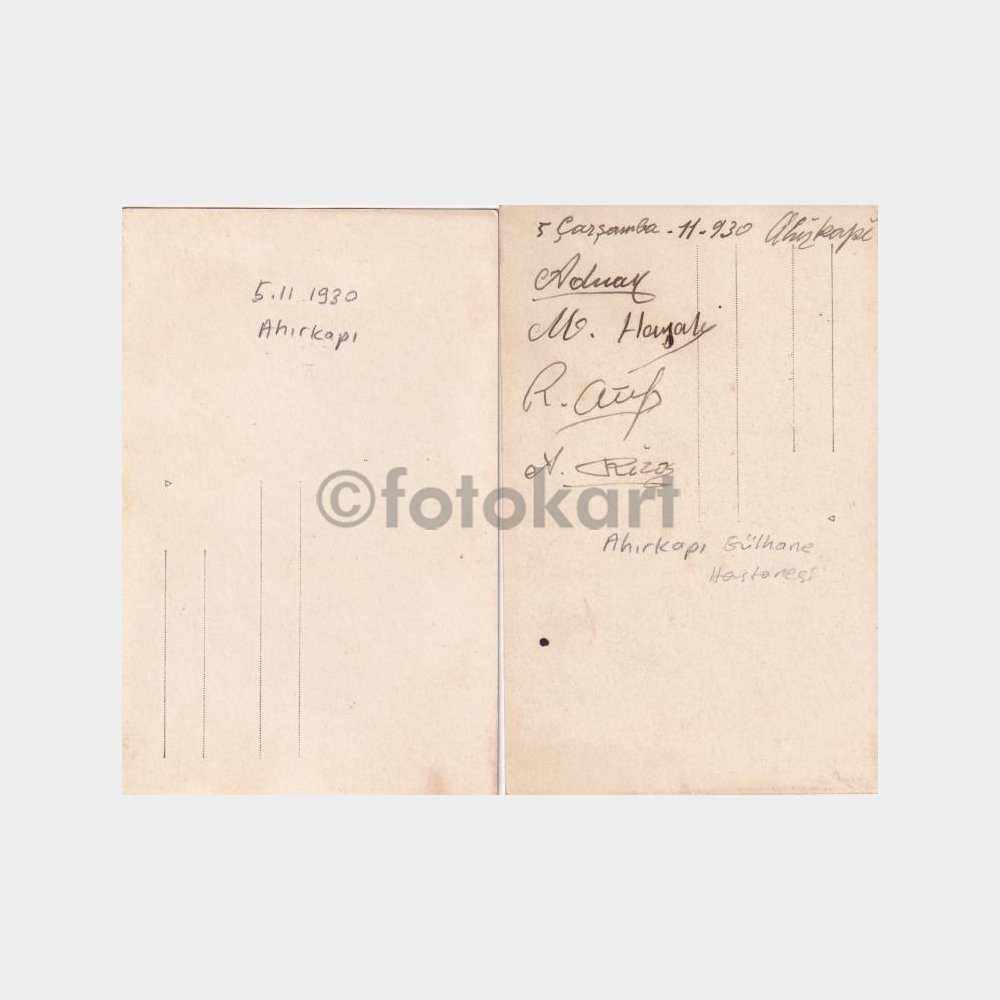 5.11.1930
Ahırkapı
5 Çarşamba - 11 - 930 Ahırkapı
Adnan
M. Hayati
R. Atıf
A. Rıza
Ahırkapı Gülhane
Hastanesi
©fotokart